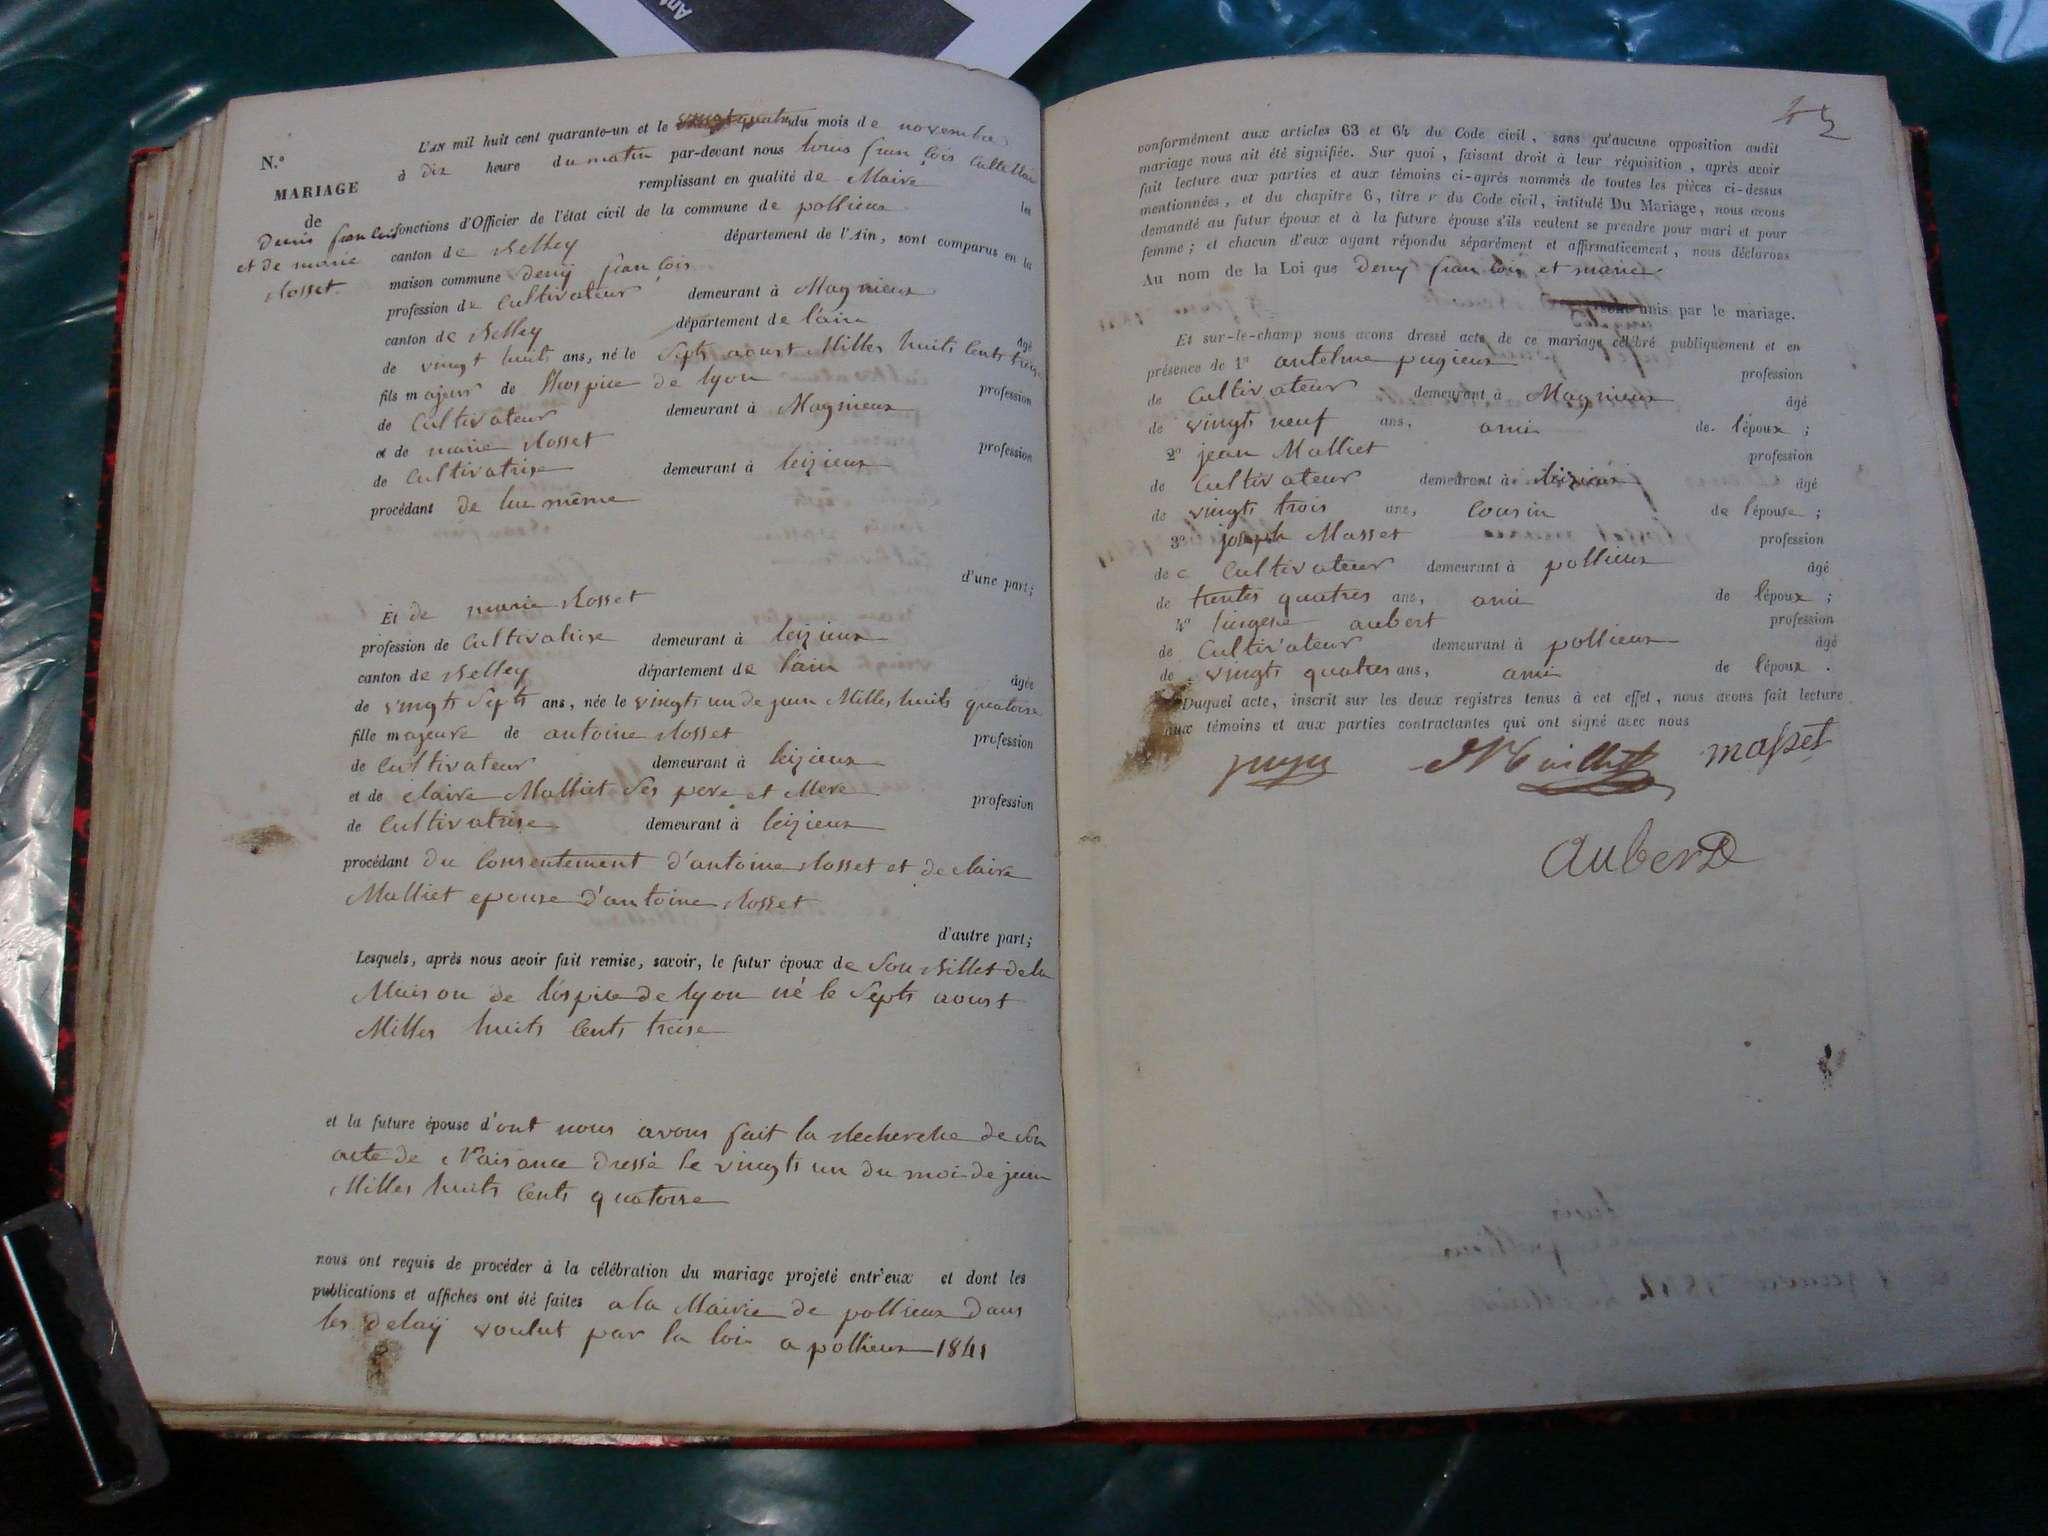 N.o
MARIAGE
de
Denis francois
et de marie
Rosset
L'AN mil huit cent quarante-un et le vingt quatre du mois de novembre
à dix heure du matin par-devant nous louis françois
remplissant en qualité de Maire les
fonctions d'Officier de l'état civil de la commune de pollieux
canton de Belley département de l'Ain, sont comparus en la
maison commune Deny françois
profession de Cultivateur demeurant à Magnieux
canton de Belley département de l'ain âgé
de vingt huits ans, né le Septs aoust Milles huits cents treise
fils majeur de l'hospice de lyon profession
de Cultivateur demeurant à Magnieux
et de marie Rosset profession
de Cultivatrise demeurant à leizieux
procédant de lui même
d'une part;
Et de marie Rosset
profession de Cultivatrise demeurant à leizieux
canton de Belley département de l'ain âgée
de vingts Septs ans, née le vingts un de juin Milles huits quatorse
fille majeure de antoine Rosset profession
de Cultivateur demeurant à leizieux
et de Claire Malliet Ses pere et Mere profession
de Cultivatrise demeurant à leizieux
procédant du Consentement d'antoine Rosset et de Claire
Malliet epouse d'antoine Rosset
d'autre part;
Lesquels, après nous avoir fait remise, savoir, le futur époux de Son Billet de la
Maison de l'óspice de lyon né le Septs aoust
Milles huits Cents treise
et la future épouse d'ont nous avons fait la Recherche de Son
acte de Naisance dressé le vingts un du moi de juin
Milles huits Cents quatorse
nous ont requis de procéder à la célébration du mariage projeté entr'eux et dont les
publications et affiches ont été faites a la Mairie de pollieux Dans
les delaÿ voulut par la loi a pollieux 1841
conformément aux articles 63 et 64 du Code civil, sans qu'aucune opposition audit
mariage nous ait été signifiée. Sur quoi, faisant droit à leur réquisition, après avoir
fait lecture aux parties et aux témoins ci-après nommés de toutes les pièces ci-dessus
mentionnées, et du chapitre 6, titre v du Code civil, intitulé Du Mariage, nous avons
demandé au futur époux et à la future épouse s'ils veulent se prendre pour mari et pour
femme; et chacun d'eux ayant répondu séparément et affirmaticement, nous déclarons
Au nom de la Loi que Deny francois et marie
sont unis par le mariage.
Et sur-le-champ nous avons dressé acte de ce mariage célébré publiquement et en
présence de 1o antelme pugieux profession
de Cultivateur demeurant à Magnieux âgé
de vingts neuf ans, ami de l'époux;
2o jean Malliet profession
de Cultivateur demeurant à leizieux âgé
de vingts trois ans, Cousin de l'épouse;
3o joseph Masset profession
de Cultivateur demeurant à pollieux âgé
de trentes quatres ans, ami de l'époux;
4o aubert profession
de Cultivateur demeurant à pollieux âgé
de vingts quatres ans, ami de l'époux.
Duquel acte, inscrit sur les deux registres tenus à cet effet, nous avons fait lecture
aux témoins et aux parties contractantes qui ont signé avec nous
Maillet masset
aubert